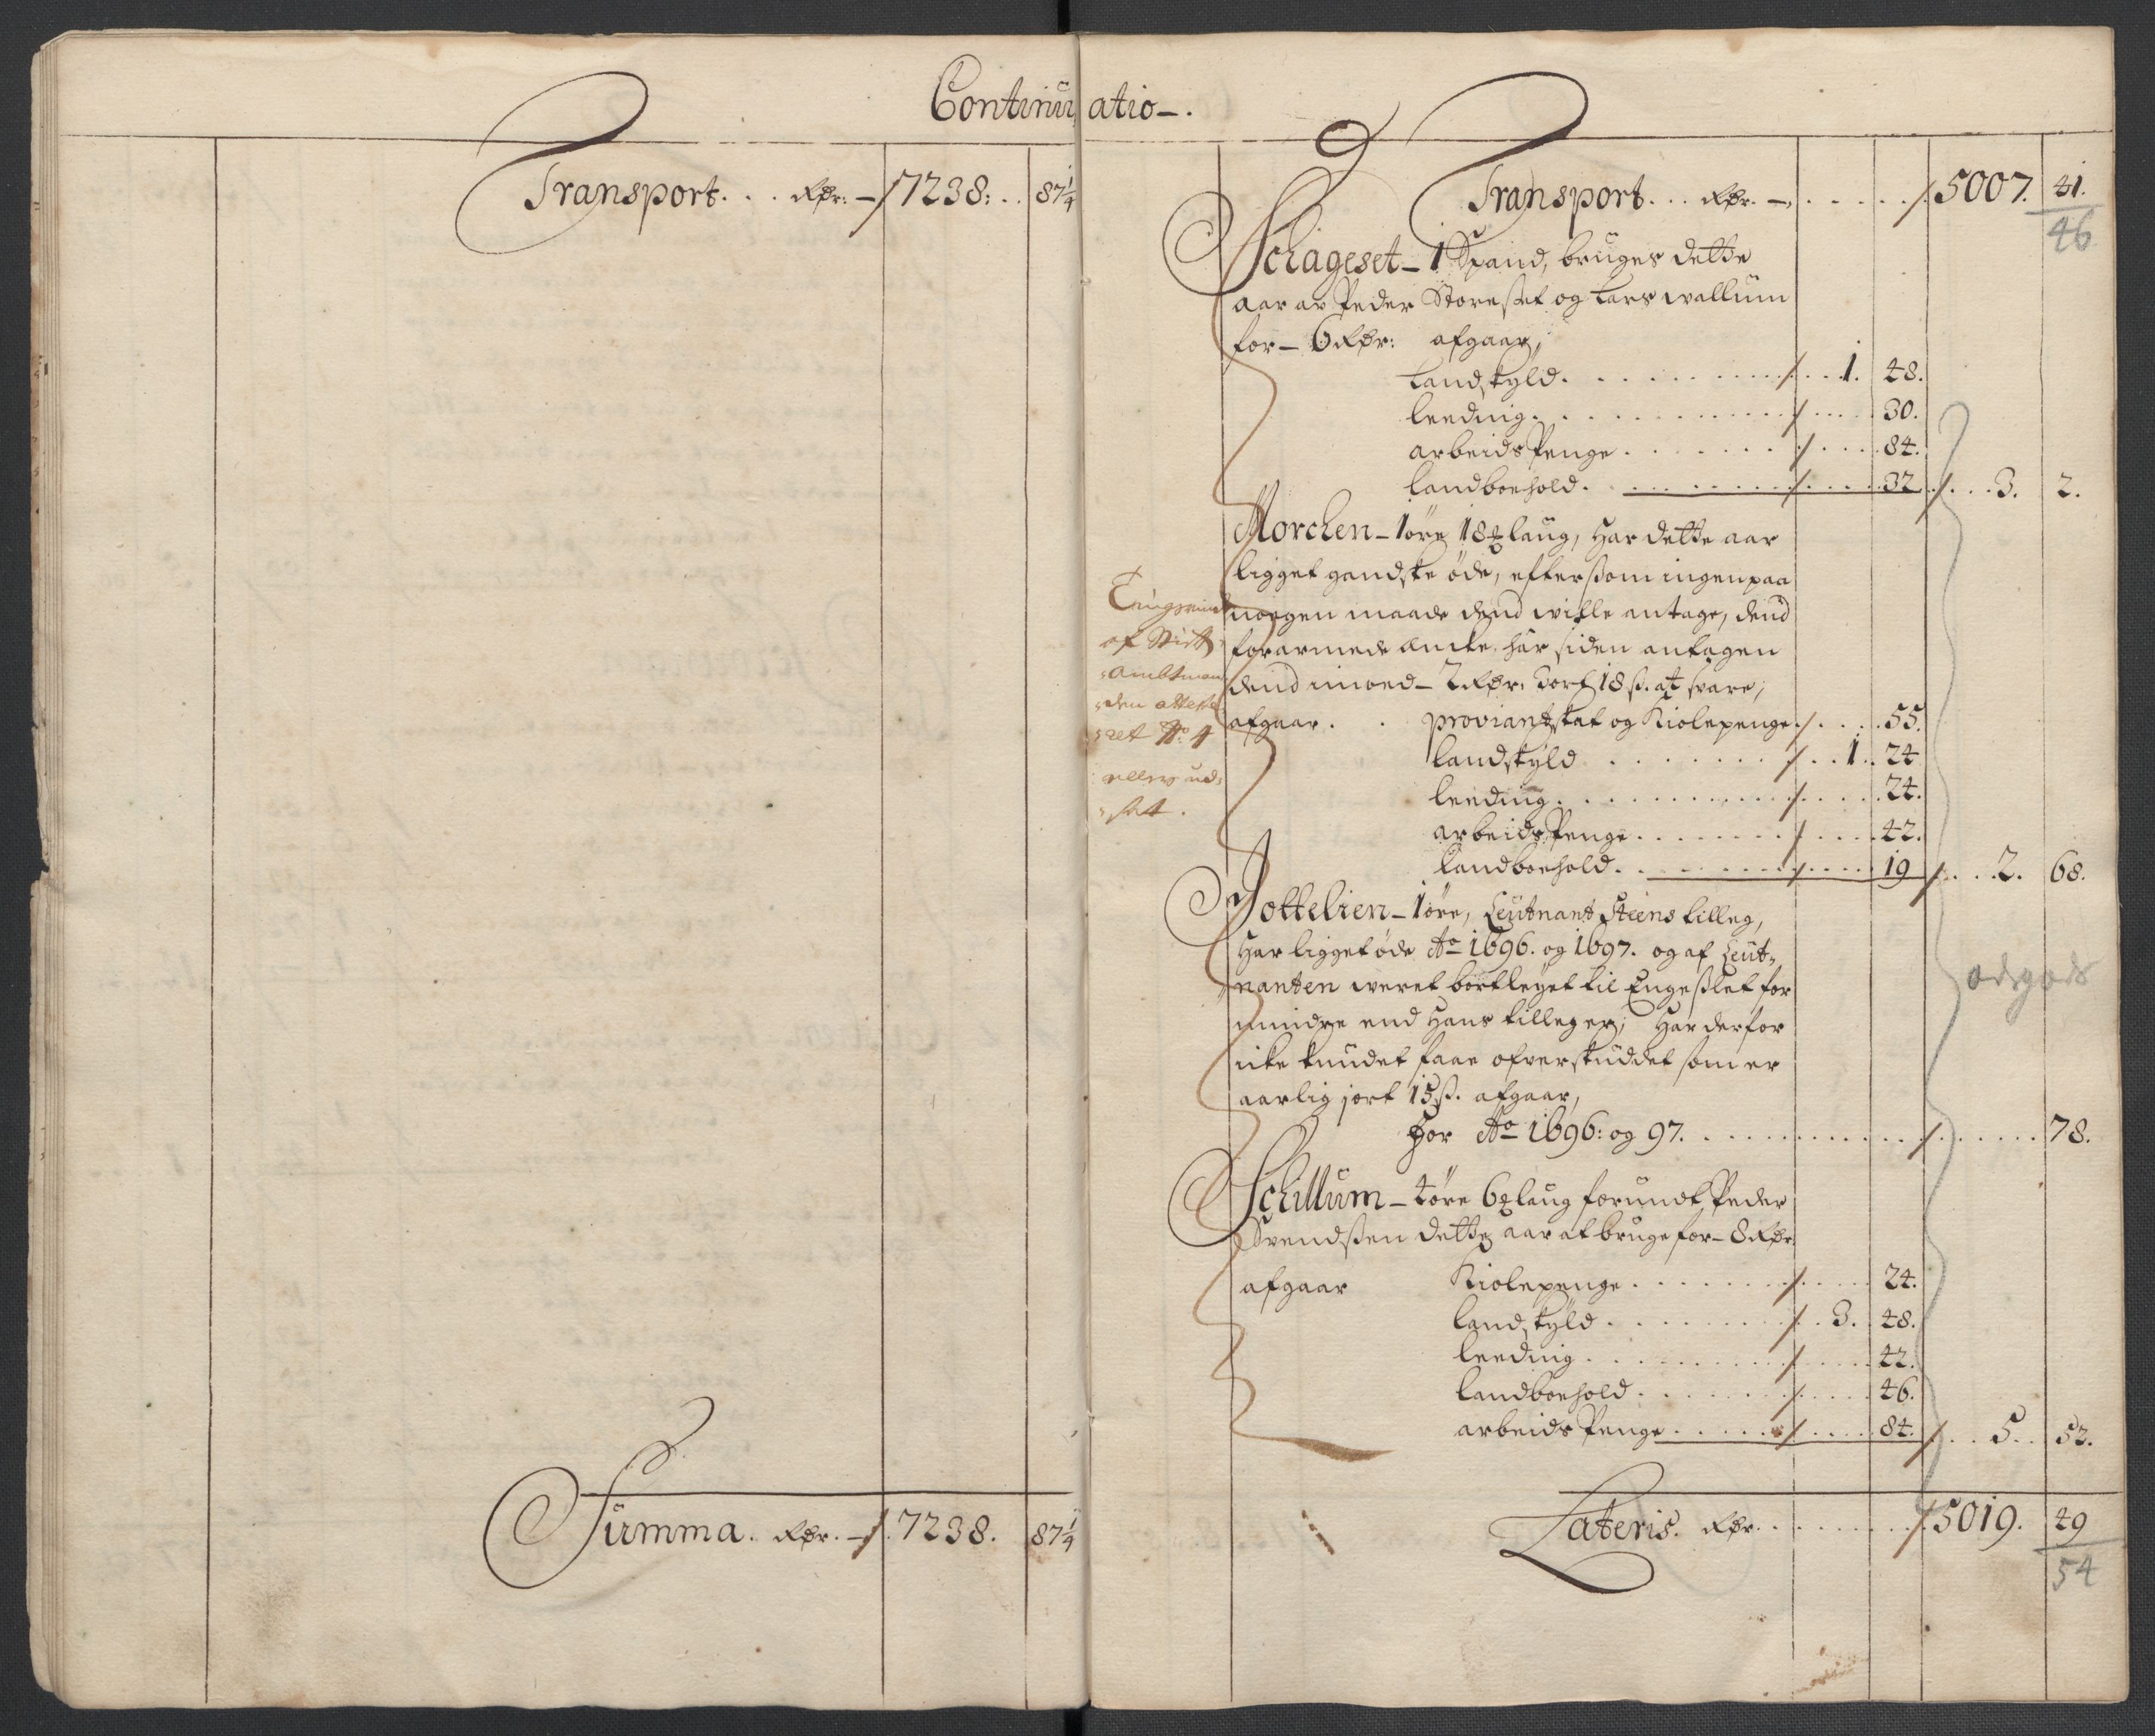 Continuatio.
Transport. . . Rdr: 7238: . . 87 1/4
Summa. Rdr. 7238. 87 1/4
Transport. . . Rdr. 5007. 41.
46
Schageset - 1 Spand, bruges dette
aar av Peder Storeset og Lars wallum
for - 6 Rdr: afgaar,
Landskyld. 1. 48.
leeding. 30.
arbeids Penge. 84.
landboehold. 32 3. 2.
Morchen - 1 øre 18 laug, Har dette aar
ligget gandske øde, eftersom ingen paa
nogen maade dend wille antage, dend
forarmede har siden antagen
dend imoed - 2 Rdr. 18 ß. at svare,
afgaar. proviantskat og Kiolepenge 55.
landskyld 1. 24
leeding. 24.
arbeids Penge. 42.
landboehold. 19 2. 68.
Tingsvinde
af Stift
Ambtman
den atteste
ret No 4
ellers ud
sat.
Jottelien - 1 øre, Leutnant Steens tilleg,
Har ligget øde Ao 1696. og 1697. og af Leut-
nanten weret bortleyet til Engeslet for
mindre end Hans tilleg er, Har derfor
icke kundet faae ofverskuddet som er
aarlig 15 ß. afgaar,
For Ao 1696: og 97. 78.
ødegods
Schillum - 4 øre 6 laug forundt Peder
Svendsen dette aar at bruge for - 8 Rdr
afgaar Kiolepenge. 24.
landskyld. 3. 48.
leeding. 42.
landboehold. 46.
arbeids Penge. 84. 5. 52.
Lateris. Rdr. 5019. 49
54